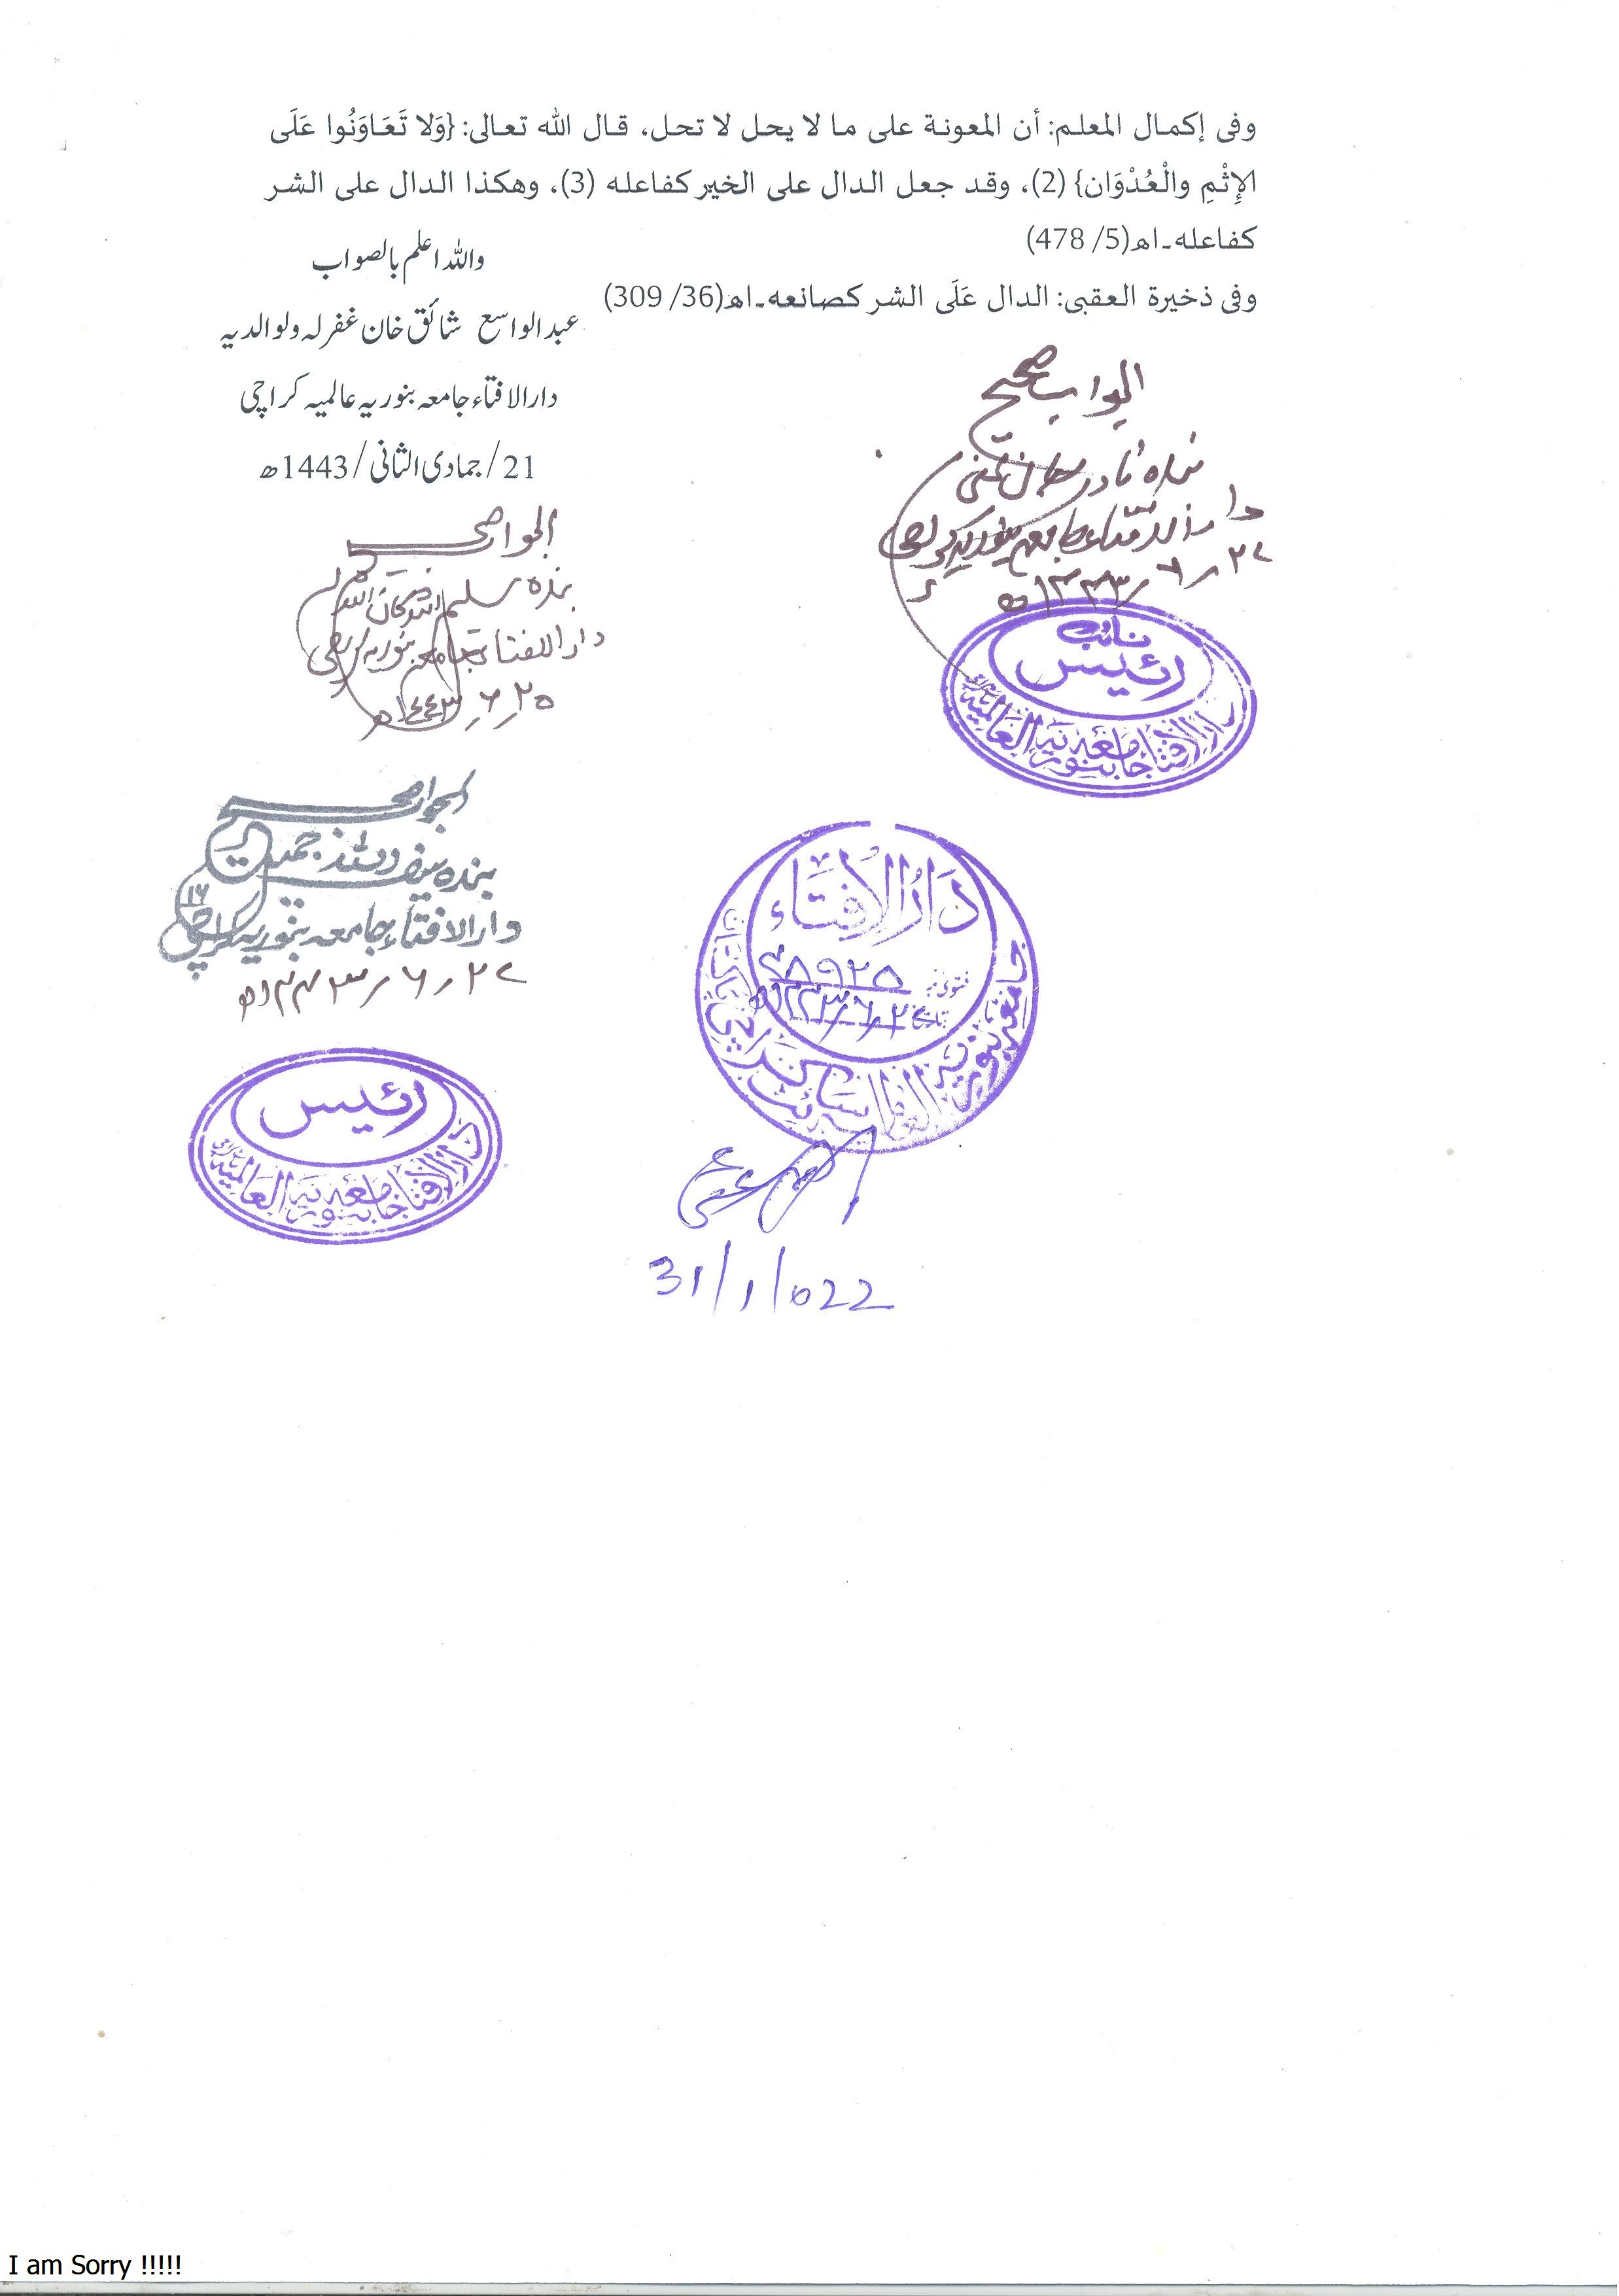 وفی إكمال المعلم: أن المعونة على ما لا يحل لا تحل، قال الله تعالى: {وَلا تَعَاوَنُوا عَلَى
الإِثْمِ والْعُدْوَان} (2)، وقد جعل الدال على الخير كفاعله (3)، وهكذا الدال على الشر
كفاعله۔اھ(5/ 478)
وفی ذخيرة العقبى: الدال عَلَى الشر كصانعه۔اھ(36/ 309)
واللہ اعلم بالصواب
عبد الواسع شائق خان غفرلہ ولوالدیہ
دارالافتاء جامعہ بنوریہ عالمیہ کراچی
21/جمادی الثانی/1443ھ
الجواب صحیح
بندہ نادر جان
دارالافتاء جامعہ بنوریہ کراچی
۲۷؍۶؍۱۴۴۳ھ
نائب
رئیس
دارالافتاء جامعہ بنوریہ العالمیہ
الجواب صحیح
بندہ سلیم اللہ
دارالافتاء جامعہ بنوریہ کراچی
۲۵؍۶؍۱٤٤۳ھ
الجواب صحیح
بندہ سیف
دارالافتاء جامعہ بنوریہ کراچی
۲۷؍۶؍۱۴۴۳ھ
دَارُالاِفتَاء
فتوی نمبر ۴۸۹۲۵
تاریخ ۲۷؍۶؍۱۴۴۳ھ
جامعہ بنوریہ العالمیہ سائٹ کراچی پاکستان
رئیس
دارالافتاء جامعہ بنوریہ العالمیہ
31/1/022
I am Sorry !!!!!